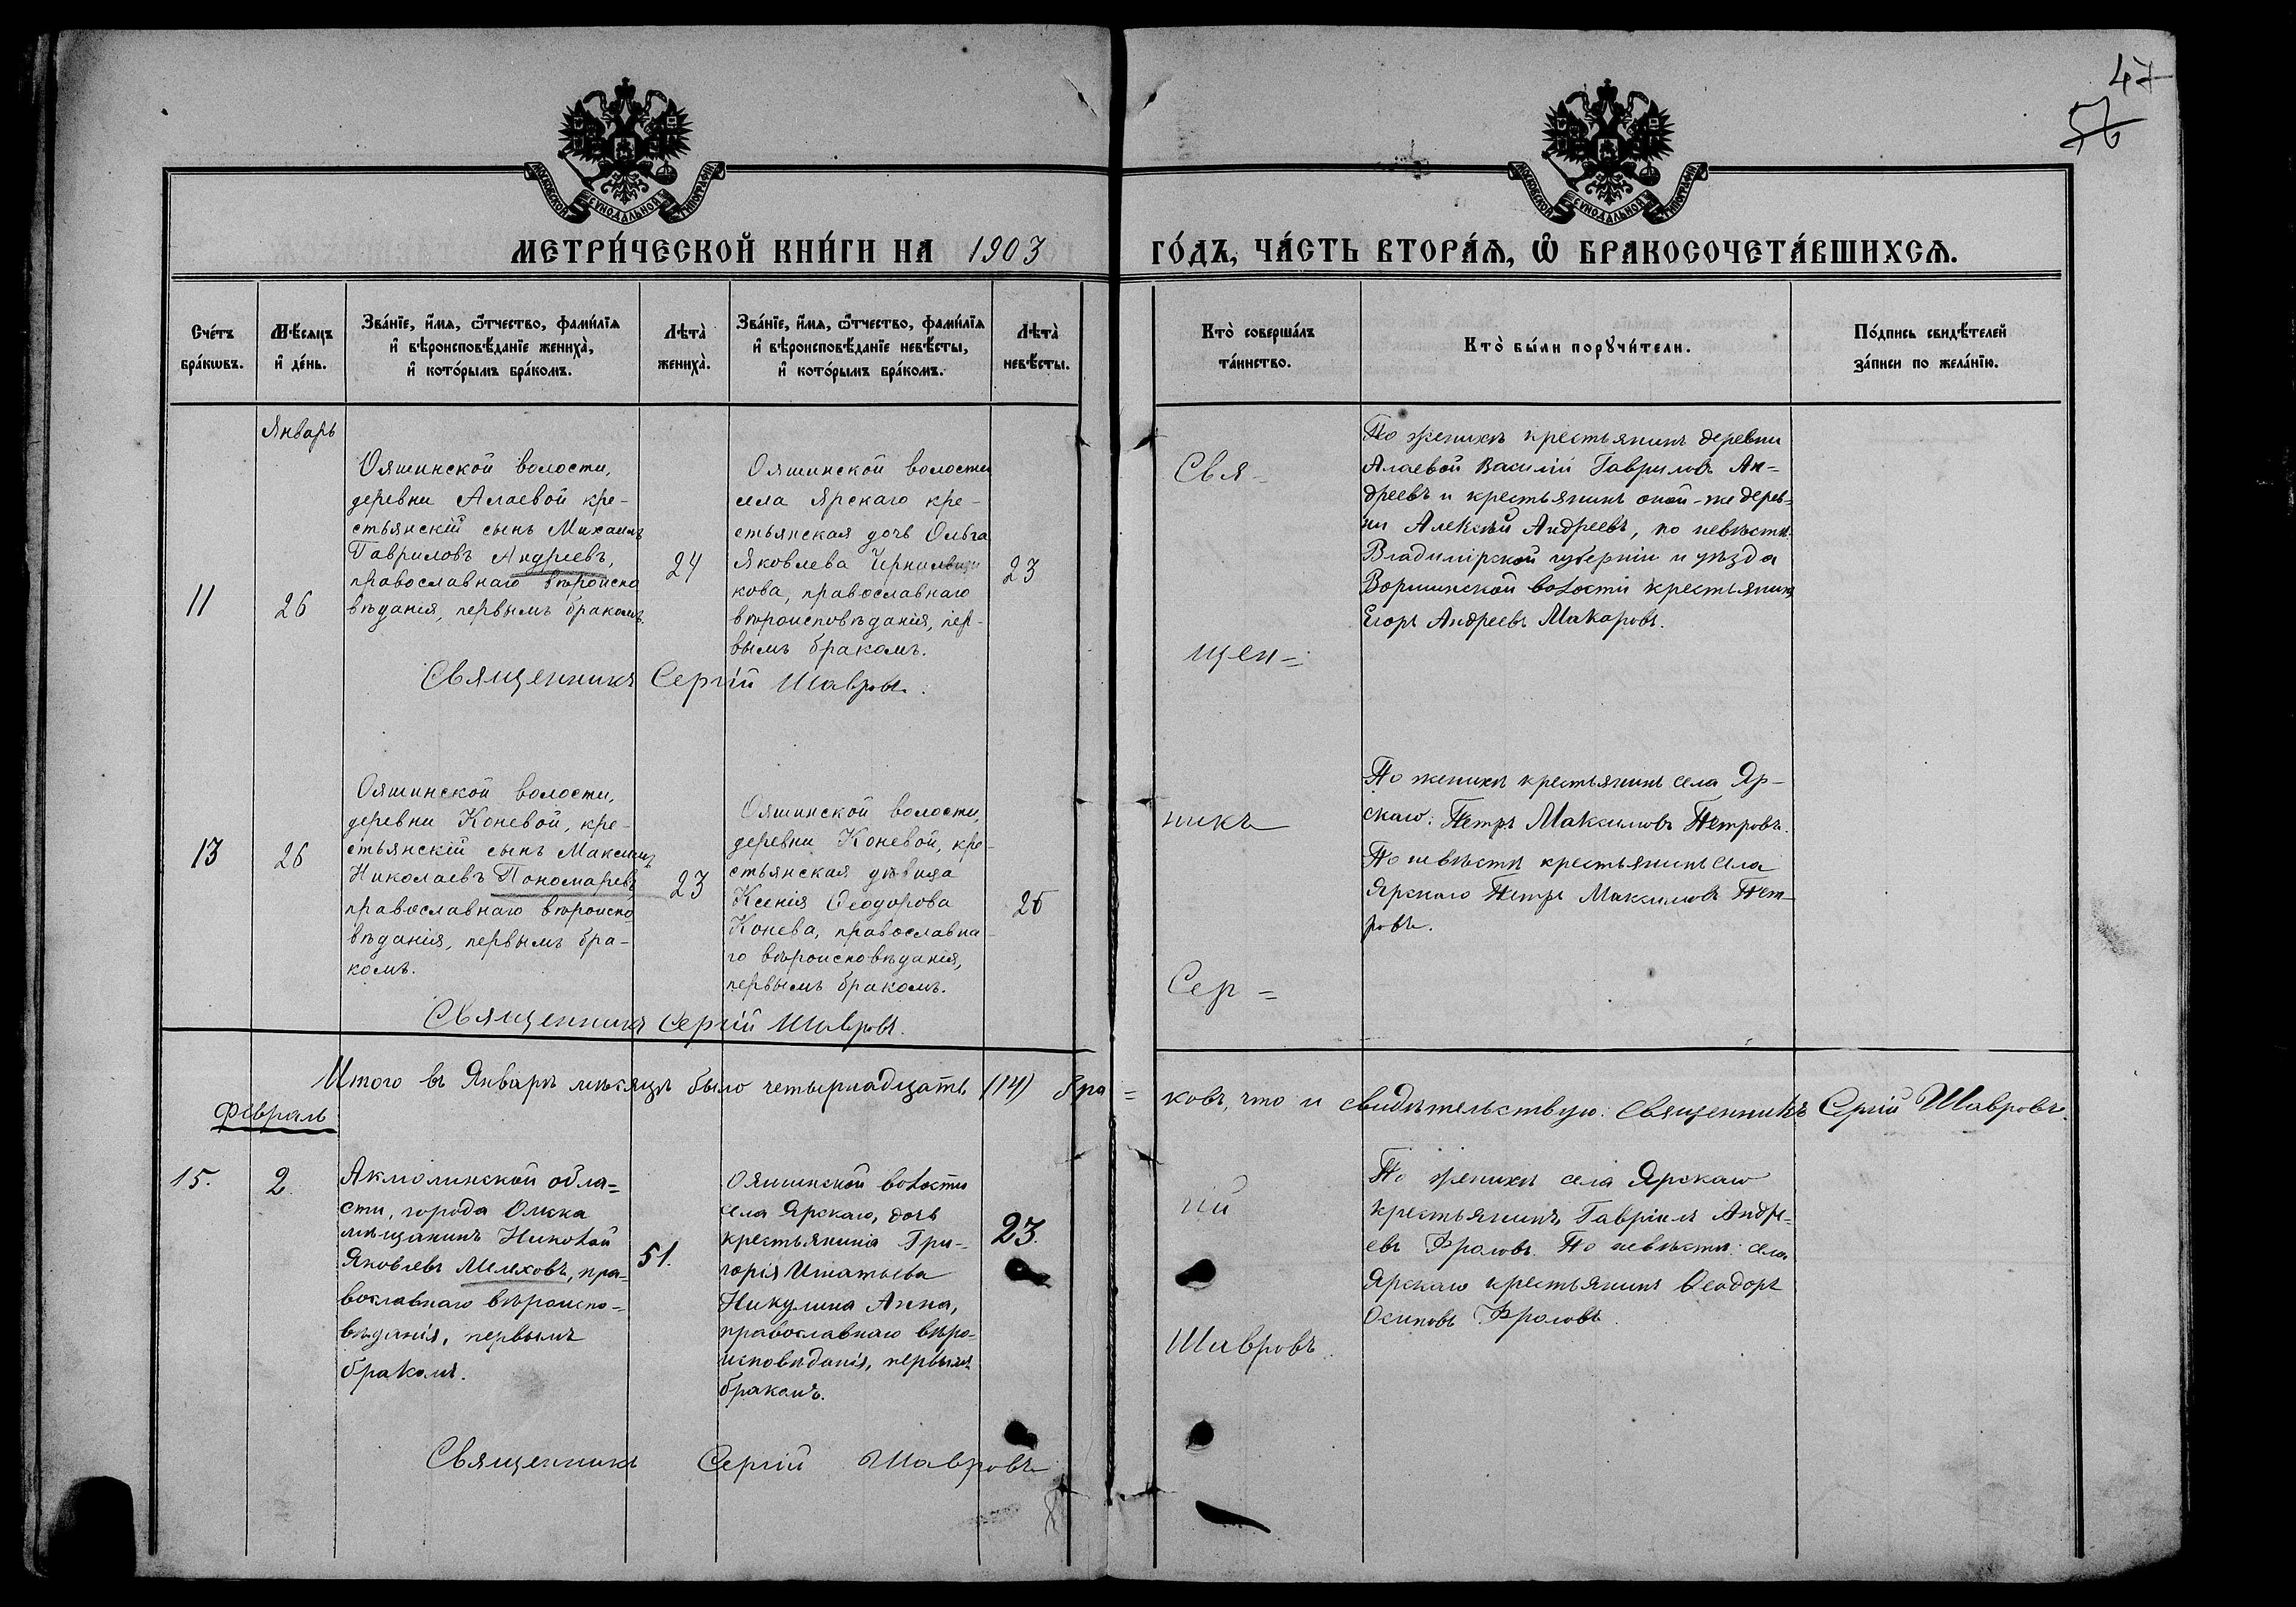 47
56
МОСКОВСКОЙ СѴНОДАЛЬНОЙ ТИПОГРАФІИ
МОСКОВСКОЙ СѴНОДАЛЬНОЙ ТИПОГРАФІИ
МЕТРИ́ЧЕСКОЙ КНИ́ГИ НА 1903 ГО́ДЪ, ЧА́СТЬ ВТОРА́Ѧ, Ѽ БРАКОСОЧЕТА́ВШИХСѦ.
Сче́тъ
бра́кѡвъ.
Мѣ́сѧцъ
и҆ де́нь.
Зва́нїе, и҆́мѧ, ѻ҆́тчество, фами́лїѧ
и҆ вѣроисповѣ́данїе жениха̀,
и҆ кото́рымъ бра́комъ.
Лѣта̀
жениха̀.
Зва́нїе, и҆́мѧ, ѻ҆́тчество, фами́лїѧ
и҆ вѣроисповѣ́данїе невѣ́сты,
и҆ кото́рымъ бра́комъ.
Лѣта̀
невѣ́сты.
Кто̀ соверша́лъ
та́инство.
Кто̀ бы́ли порꙋчи́тели.
По́дпись свидѣ́телей
за́писи по жела́нїю.
Январь
11
26
Ояшинской волости,
деревни Алаевой кре-
стьянскій сынъ Михаилъ
Гавриловъ Андреевъ,
православнаго вѣроиспо
вѣданія, первымъ бракомъ.
24
Ояшинской волости
села Ярскаго кре-
стьянская дочь Ольга
Яковлева
кова, православнаго
вѣроисповѣданія, пер-
вымъ бракомъ.
23
Священникъ Сергій Шавровъ.
Свя-
щен-
По женихѣ крестьянинъ деревни
Алаевой Василій Гавриловъ Ан-
дреевъ и крестьянинъ оной-же дерев-
ни Алексѣй Андреевъ, по невѣстѣ
Владимірской губерніи и уѣзда
Воршинской волости крестьянинъ
Егоръ Андреевъ Макаровъ.
13
26
Ояшинской волости,
деревни Коневой, кре-
стьянскій сынъ Максимъ
Николаевъ Пономаревъ,
православнаго вѣроиспо
вѣданія, первымъ бра-
комъ.
23
Ояшинской волости,
деревни Коневой, кре-
стьянская дѣвица
Ксенія Ѳеодорова
Конева, православна-
го вѣроисповѣданія,
первымъ бракомъ.
Священникъ Сергій Шавровъ.
никъ
Сер-
По женихѣ крестьянинъ села Яр-
скаго: Петръ Максимовъ Петровъ.
По невѣстѣ крестьянинъ села
Ярскаго Петръ Максимовъ Пет-
ровъ.
Итого въ Январѣ мѣсяцѣ было четырнадцать (14) бра=ковъ, что и свидѣтельствую: Священникъ Сергій Шавровъ.
Февраль
15.
2.
Акмолинской обла=
сти, города Омска
мѣщанинъ Николай
Яковлевъ Мелеховъ, пра-
вославнаго вѣроиспо-
вѣданія, первымъ
бракомъ.
51.
Ояшинской волости
села Ярскаго, дочь
крестьянина Гри-
горія Игнатьева
Никулина Анна,
православнаго вѣро-
исповѣданія, первымъ
бракомъ.
23.
Священникъ Сергій Шавровъ
гій
Шавровъ.
По женихѣ села Ярскаго
крестьянинъ Гавріилъ Андре-
евъ Фроловъ. По невѣстѣ: села
Ярскаго крестьянинъ Ѳеодоръ
Осиповъ Фроловъ.